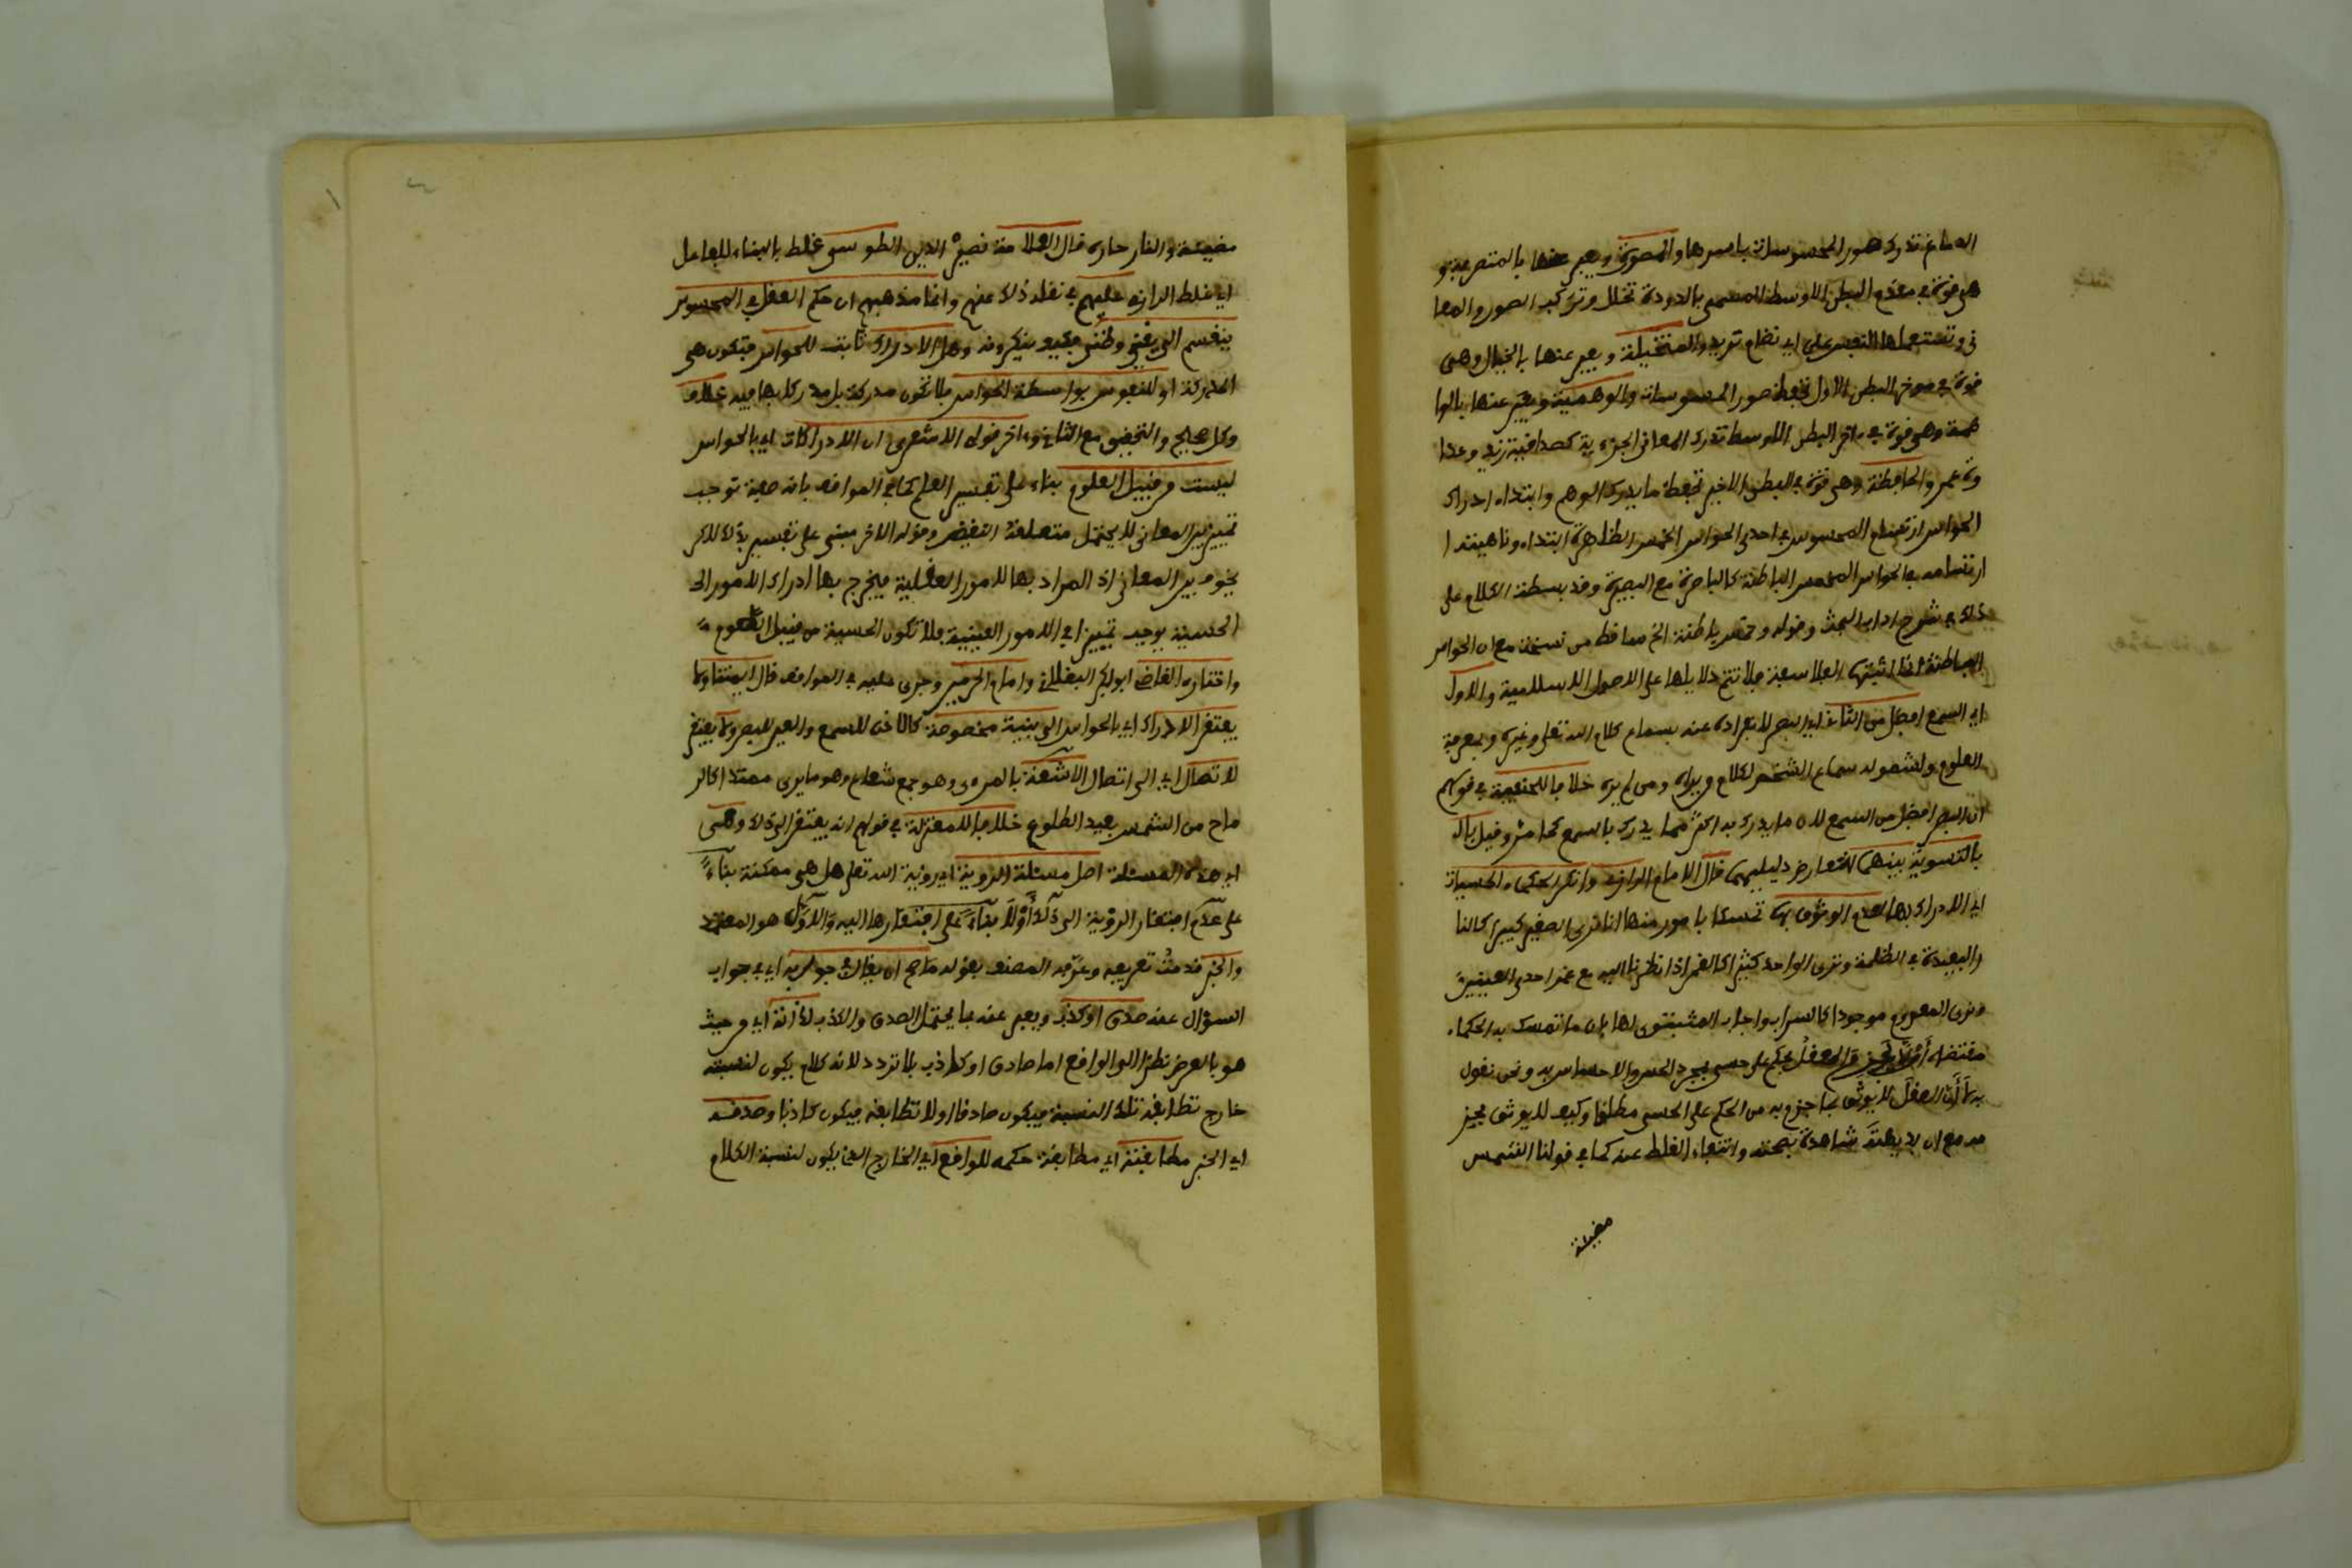 الدماغ تدرك صور المحسوسات باسرها والمصورة ويعبر عنها بالمتصرفة و
هي قوة في مقدم البطن الاوسط المسمى بالدودة تحلل وتركب الصور والمعا
ني وتستعملها النفس على اي نظام تريد والمتخيلة ويعبر عنها بالخيال وهي
قوة في موخر البطن الاول تحفظ صور المحسوسات والوهمية ويعبر عنها بالوا
همة وهي قوة في اخر البطن الاوسط تدرك المعاني الجزءية كصداقة زيد وعدا
وة عمرو والحافظة وهي قوة في البطن الاخير تحفظ ما يدرك الوهم وابتداء ادراك
الحواس ارتسام المحسوس في احدى الحواس الخمس الظاهرة ابتداء وناهيته ا
ارتسامه في الحواس الخمس الباطنة كالباصرة مع البصيرة وقد بسطت الكلام على
ذلك في شرح اداب البحث وقوله وخمس باطنة الخ ساقط من نسخة مع ان الحواس
الباطنة انما اثبتها الفلاسفة فلا تتم دلايلها على الاصول الاسلامية والاول
اي السمع افضل من الثاني اي البصر لانفراده عنه بسماع كلام الله تعلى وغيره وبمعرفة
العلوم ولشموله سماع الشخص لكلام من يراه ومن لم يره خلافا للحنفية في قولهم
ان البصر افضل من السمع لان ما يدرك به اكثر مما يدرك بالسمع كما مر وقيل بال
بالتسوية بينهما لتعارض دليليهما قال الامام الرازي وانكر الحكماء الحسيات
اي الادراك بها لعدم الوثوق بها تمسكا بامور منها انا نرى الصغير كبيرا كالنا
ر البعيدة في الظلمة ونرى الواحد كثيرا كالقمر اذا نظرنا اليه مع غمز احدى العينين
ونرى المعدوم موجودا كالسراب واجاب المثبتون لها بان ما تمسك به الحكماء
مقتضاه ان لا نجزم والعقل بحكم على حسي بمجرد الحس والاحساس به ونحن نقول
به لا ان العقل لا يوثق بما جزم به من الحكم على الحسي مطلقا وكيف لا يوثق بجز
مه مع ان بديهته شاهدة بصحته وانتفاء الغلط عنه كما في قولنا الشمس
مضيئة
مضيئة والنار حارة قال العلامة نصير الدين الطوسي غلط بالبناء للفاعل
اي غلط الرازي عليهم في نقله ذلك عنهم وانما مذهبهم ان حكم العقل في المحسوس
ينقسم الى يقيني وظني فكيف ينكرونه وهل الادراك ثابت للحواس فتكون هي
المدركة او للنفوس بواسطة الحواس فلا تكون مدركة بل مدرك بها فيه خلاف
وكل صحيح والتحقيق مع الثاني واخر قولي الاشعري ان الادراكات اي بالحواس
ليست من قبيل العلوم بناء على تفسير العلم كما في المواقف بانه صفة توجب
تمييز بين المعاني لا يحتمل متعلقه النقيض وقوله الاخر مبني على تفسير بذلك لكن
بحذف بين المعاني اذ المراد بها الامور العقلية فيخرج بها ادراك الامور الحـ
الحسية يوجب تمييزا في الامور العينية فلا تكون الحسية من قبيل العلوم
واختاره القاضي ابوبكر الباقلاني وامام الحرمين وجرى عليه في المواقف قال ايمتنا ولا
يفتقر الادراك اي بالحواس الى بنية مخصوصة كالاذن للسمع والعين للبصر ولا يفتقر
لاتصال اي الى اتصال الاشعة بالمرءي وهو جمع شعاع وهو ما يرى ممتدا كالر
ماح من الشمس بعيد الطلوع خلافا للمعتزلة في قولهم انه يفتقر الى ذلك وهي
اي هذه المسئلة اصل مسئلة الروية اي روية الله تعلى هل هي ممكنة بناء
على عدم افتقار الرؤية الى ذلك أو لا بناء على افتقارها اليه والاول هو المعتمد
والخبر قدمت تعريفه وعرفه المصنف بقوله ما صح ان يقال في جوابه اي في جواب
السؤال عنه صدق او كذب ويعبر عنه بما يحتمل الصدق والكذب لذاته اي من حيث
هو بالعرض نظرا الى الواقع اما صادق او كاذب بلا تردد لانه كلام يكون لنسبته
خارج تطابقه تلك النسبة فيكون صادقا او لا تطابقه فيكون كاذبا وصدقه
اي الخبر مطابقته اي مطابقة حكمه للواقع اي الخارج الذي يكون لنسبة الكلام